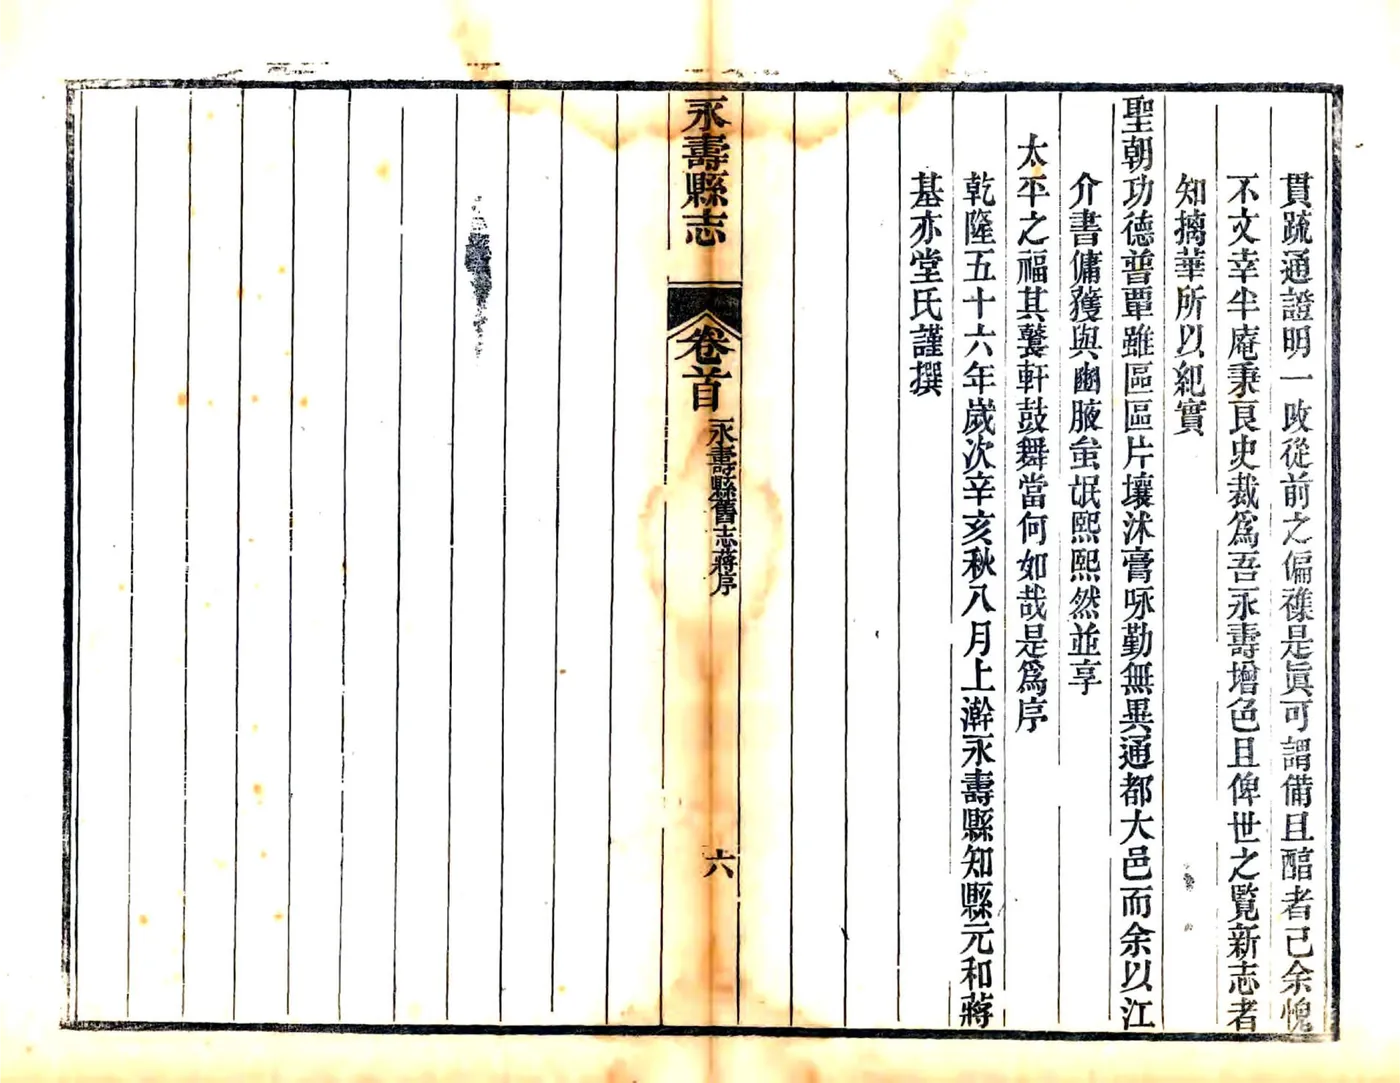 貫疏通證明一改從前之偏雜是眞可謂備且酷者已余愧
不文幸半庵秉良史裁爲吾永壽增色且俾世之覧新志者
知摛華所以紀實
聖朝功德普覃雖區區片壤沐膏咏勤無異通都大邑而余以江
介書傭獲與幽腋蚩氓熙熙然並享
太平之福其鼚軒鼓舞當何如哉是爲序
乾隆五十六年歲次辛亥秋八月上澣永壽縣知縣元和蔣
基亦堂氏謹撰
永壽縣志
卷首
永壽縣舊志蔣序
六